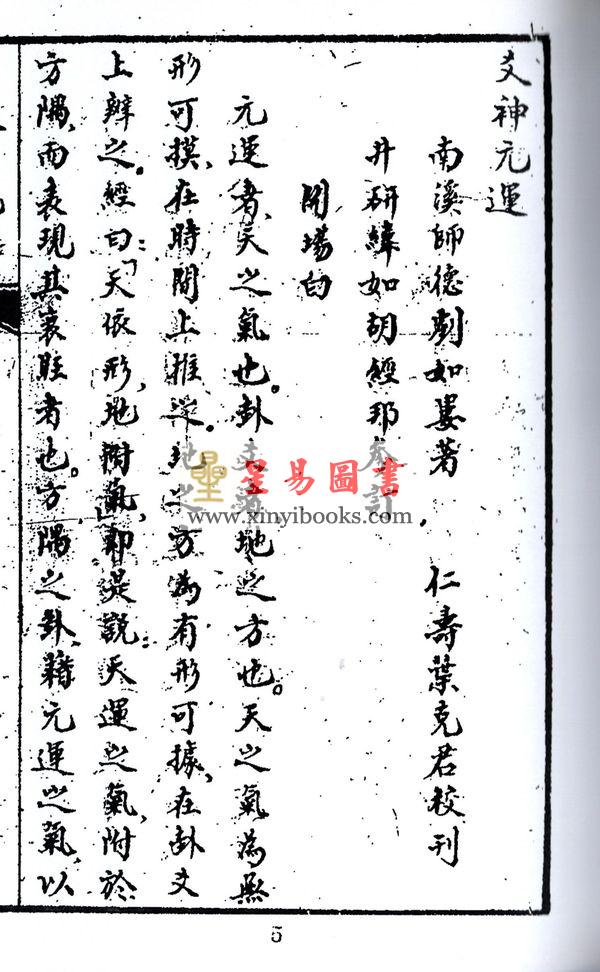 爻神元運
南溪師德劉如嬰著 仁壽葉克君校刊
井研緯如胡經邦參訂
開場白
元運者、天之氣也。卦之地之方也。天之氣為無
形可摸、在時間上推運。地之方為有形可據、在卦爻
上辨之。經曰：「天依形、地附氣」、即是說：天運之氣、附於
方隅、而表現其衰旺者也。方隅之卦、藉元運之氣、以
星易圖書
www.xinyibooks.com
5